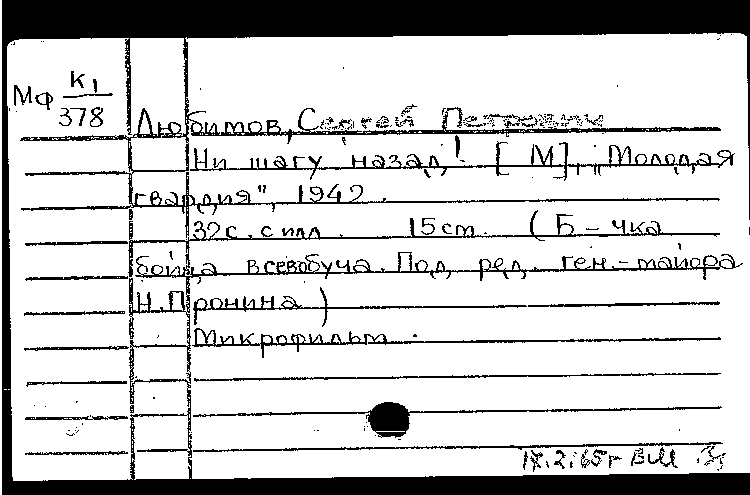 Мф К1
378
Любимов, Сергей Петрович
Ни шагу назад! [М], „Молодая
гвардия", 1942.
32с. с илл. 15ст. (Б-чка
бойца всевобуча. Под ред. ген.-майора
Н. Пронина)
Микрофильм.
2.65г